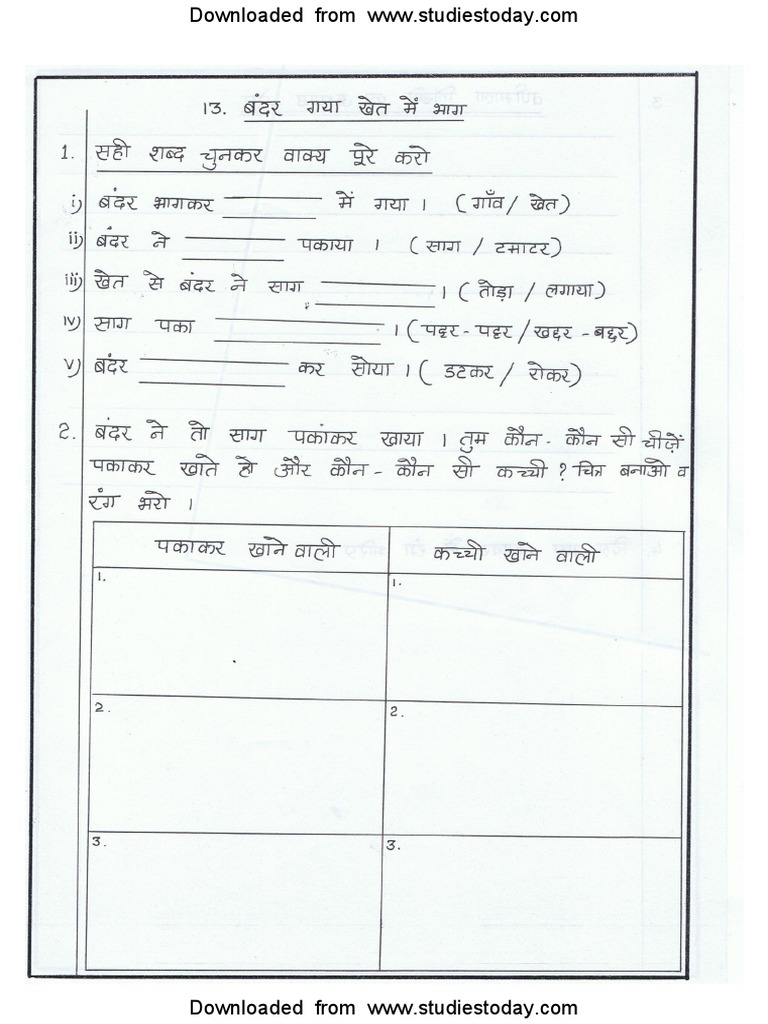 Downloaded from www.studiestoday.com
13. बंदर गया खेत में भाग
1. सही शब्द चुनकर वाक्य पूरे करो
i) बंदर भागकर ______ में गया । (गाँव / खेत)
ii) बंदर ने ______ पकाया । (साग / टमाटर)
iii) खेत से बंदर ने साग ______ । (तोड़ा / लगाया)
iv) साग पका ______ । (पद्दर-पद्दर / खद्दर-बद्दर)
v) बंदर ______ कर सोया । (डटकर / रोकर)
2. बंदर ने तो साग पकांकर खाया । तुम कौन-कौन सी चीज़ें
पकाकर खाते हो और कौन-कौन सी कच्ची ? चित्र बनाओ व
रंग भरो ।
पकाकर खाने वाली कच्ची खाने वाली
1. 1.
2. 2.
3. 3.
Downloaded from www.studiestoday.com